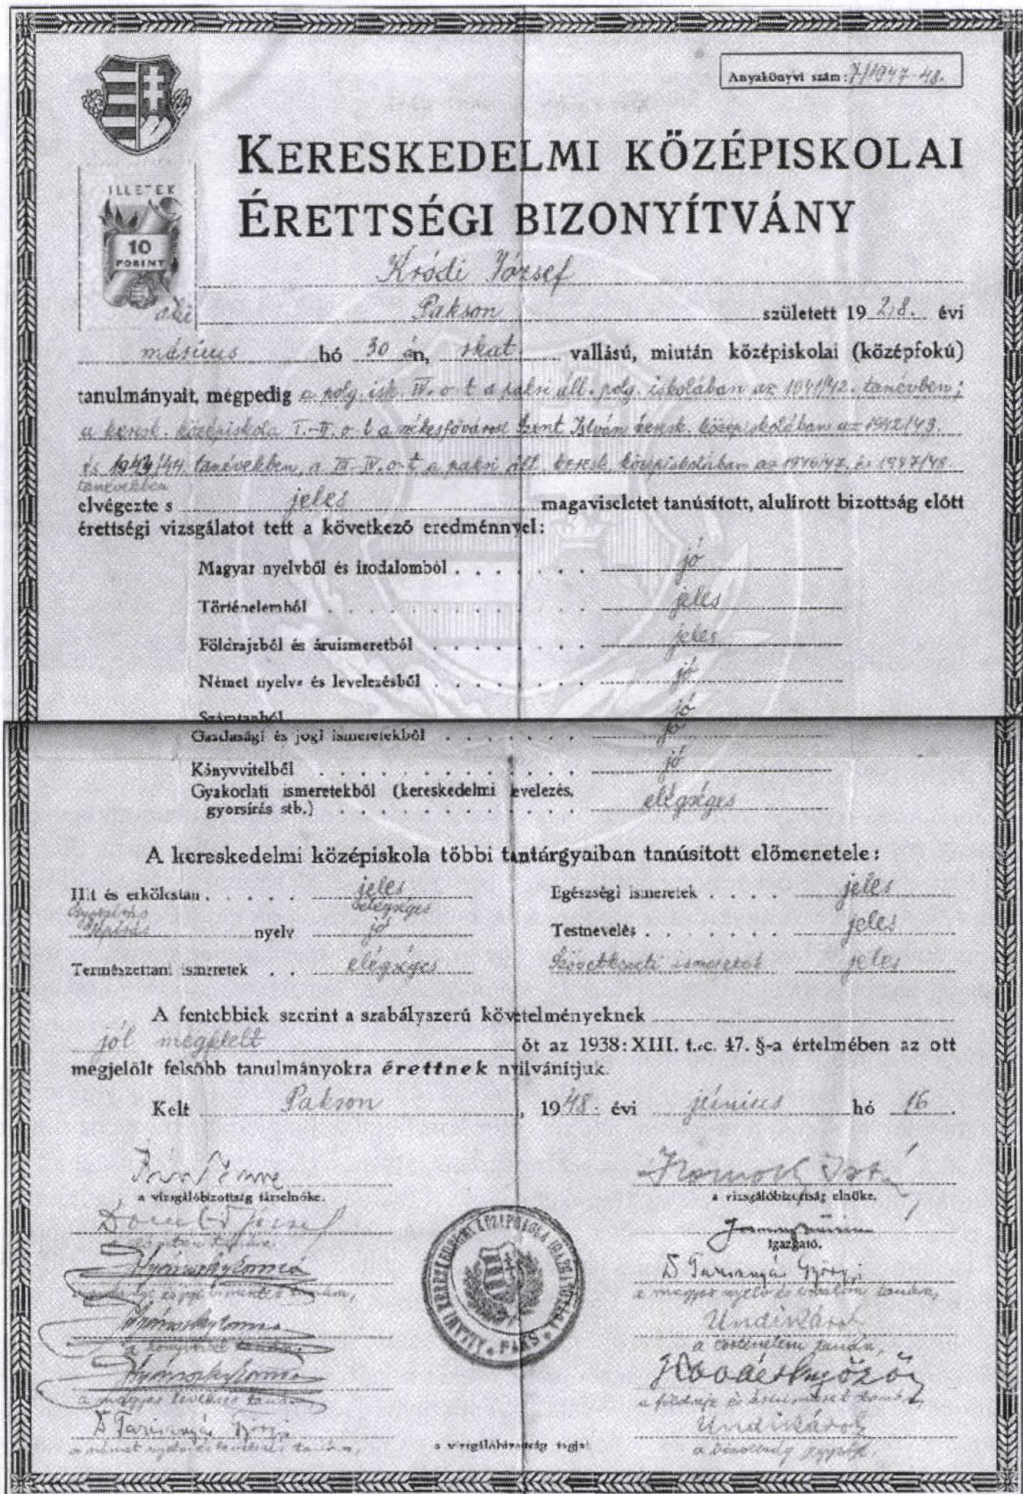 Anyakönyvi szám: 7/1947-48.
KERESKEDELMI KÖZÉPISKOLAI
ÉRETTSÉGI BIZONYÍTVÁNY
ILLETÉK
10
FORINT
Kródi József
Pakson született 1928. évi
március hó 30 án, r.kat. vallású, miután középiskolai (középfokú)
tanulmányait, mégpedig a polg. isk. IV. o-t a paksi áll. polg. iskolában az 1941/42. tanévben;
a keresk. középiskola I.-II. o-t a székesfővárosi Szent István keresk. középiskolában az 1942/43.
és 1943/44. tanévekben, a III-IV. o-t a paksi áll. keresk. középiskolában az 1946/47. és 1947/48.
tanévekben
elvégezte s jeles magaviseletet tanúsított, alulírott bizottság előtt
érettségi vizsgálatot tett a következő eredménnyel:
Magyar nyelvből és irodalomból . . . . . . . jó
Történelemből . . . . . . . jeles
Földrajzból és áruismeretből . . . . . . . jeles
Német nyelv és levelezésből . . . . . . . jó
Számtanból jó
Gazdasági és jogi ismeretekből . . . . . . . jó
Könyvvitelből . . . . . . . jó
Gyakorlati ismeretekből (kereskedelmi levelezés,
gyorsírás stb.) . . . . . . . elégséges
A kereskedelmi középiskola többi tantárgyaiban tanúsított előmenetele:
Hit és erkölcstan . . . . . jeles Egészségi ismeretek . . . . jeles
elégséges
Gyorsírás
nyelv jó Testnevelés . . . . . . . jeles
Természettani ismeretek . . elégséges Szövetkezeti ismeretek jeles
A fentebbiek szerint a szabályszerű követelményeknek
jól megfelelt őt az 1938: XIII. t.-c. 47. §-a értelmében az ott
megjelölt felsőbb tanulmányokra érettnek nyilvánítjuk.
Kelt Pakson, 1948. évi június hó 16.
a vizsgálóbizottság társelnöke. a vizsgálóbizottság elnöke.
igazgató.
Dr Tarisznyás Györgyi
a magyar nyelv és irodalom tanára,
Undi Károly
a történelem tanára,
a könyvvitel tanára,
a földrajz és áruismeret tanára,
a magyar levelezés tanára,
Undi Károly
Dr Tarisznyás Györgyi
a német nyelv és levelezés tanára,
a vizsgálóbizottság tagjai.
PAKS